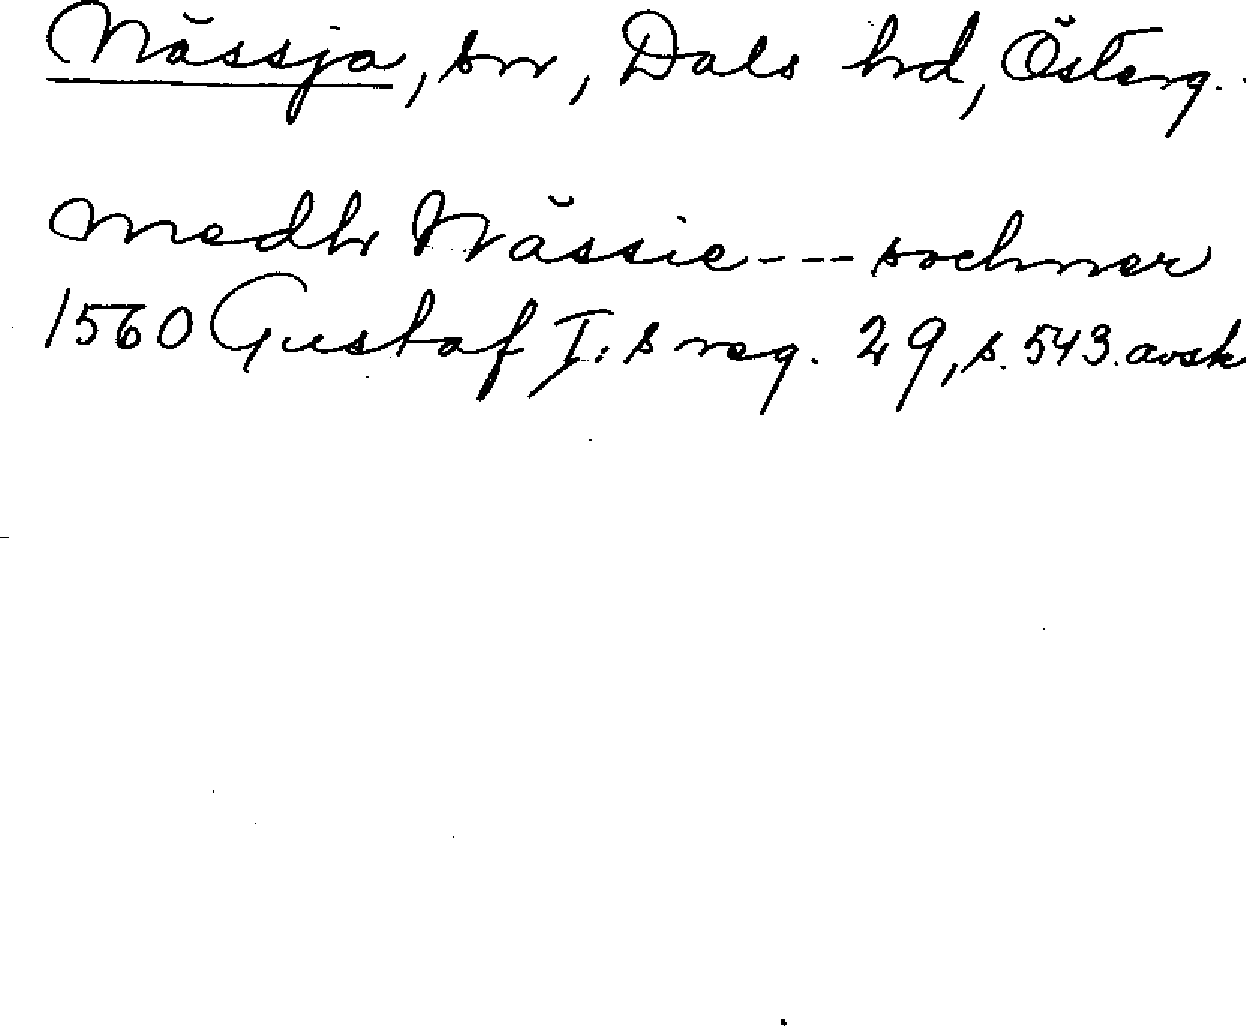 Nässja, sn, Dals hd, Österg.
medh Nässie --- sochner
1560 Gustaf I:s reg. 29, s. 543. avskr